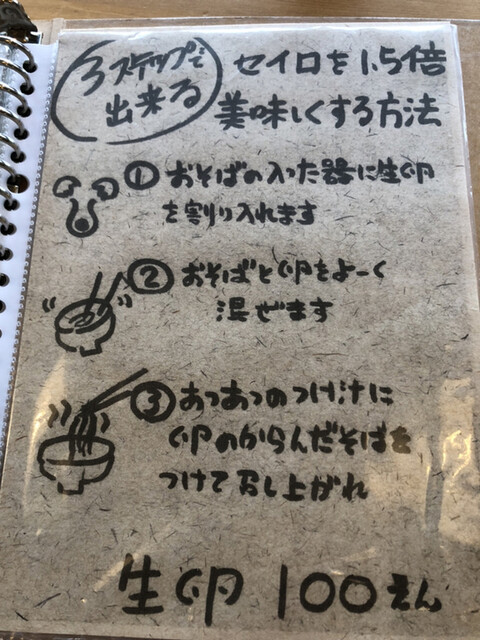 3ステップで
出来る
セイロを1.5倍
美味しくする方法
① おそばの入った器に生卵
を割り入れます
② おそばと卵をよーく
混ぜます
③ あつあつのつけ汁に
卵のからんだそばを
つけて召し上がれ
生卵 100えん